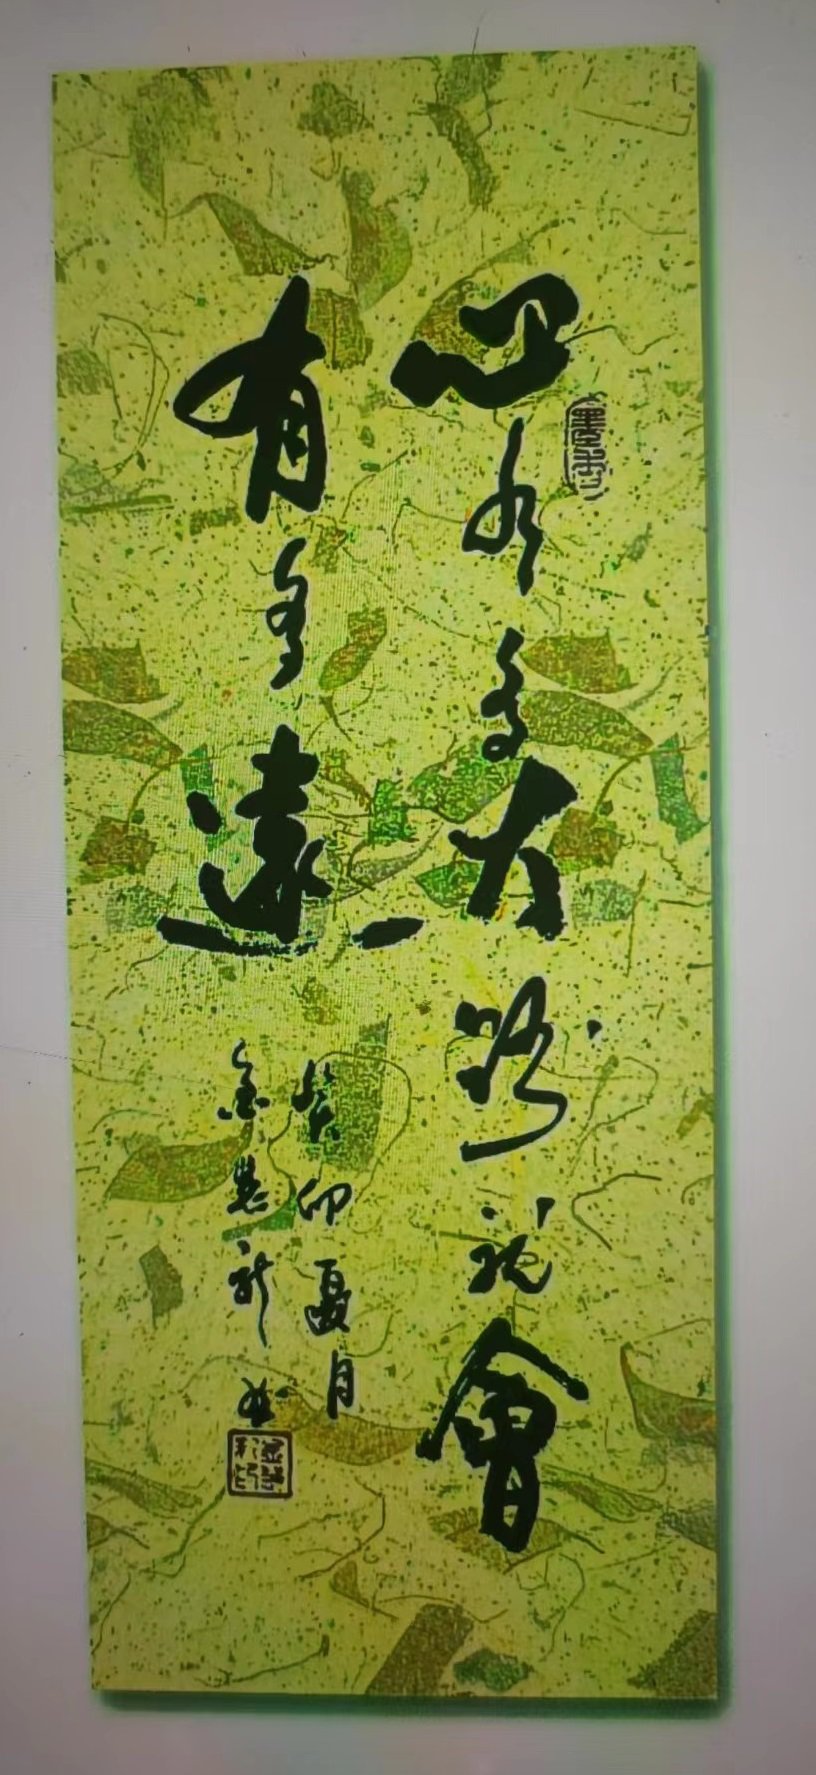 心有多大路就會
有多遠
癸卯夏月
金慧新書